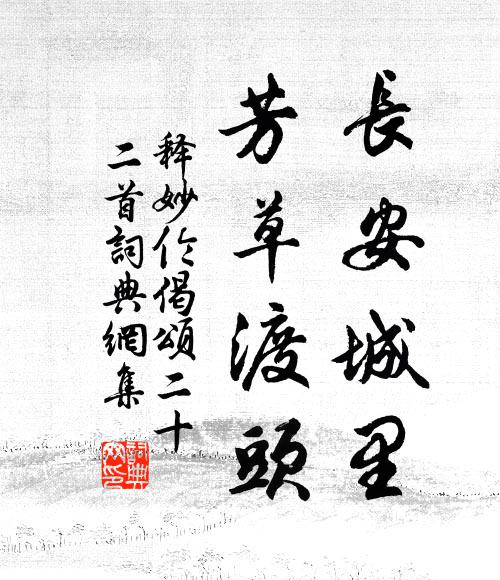 長安城里
芳草渡頭
释妙伀偈頌二十
二首詞典網集